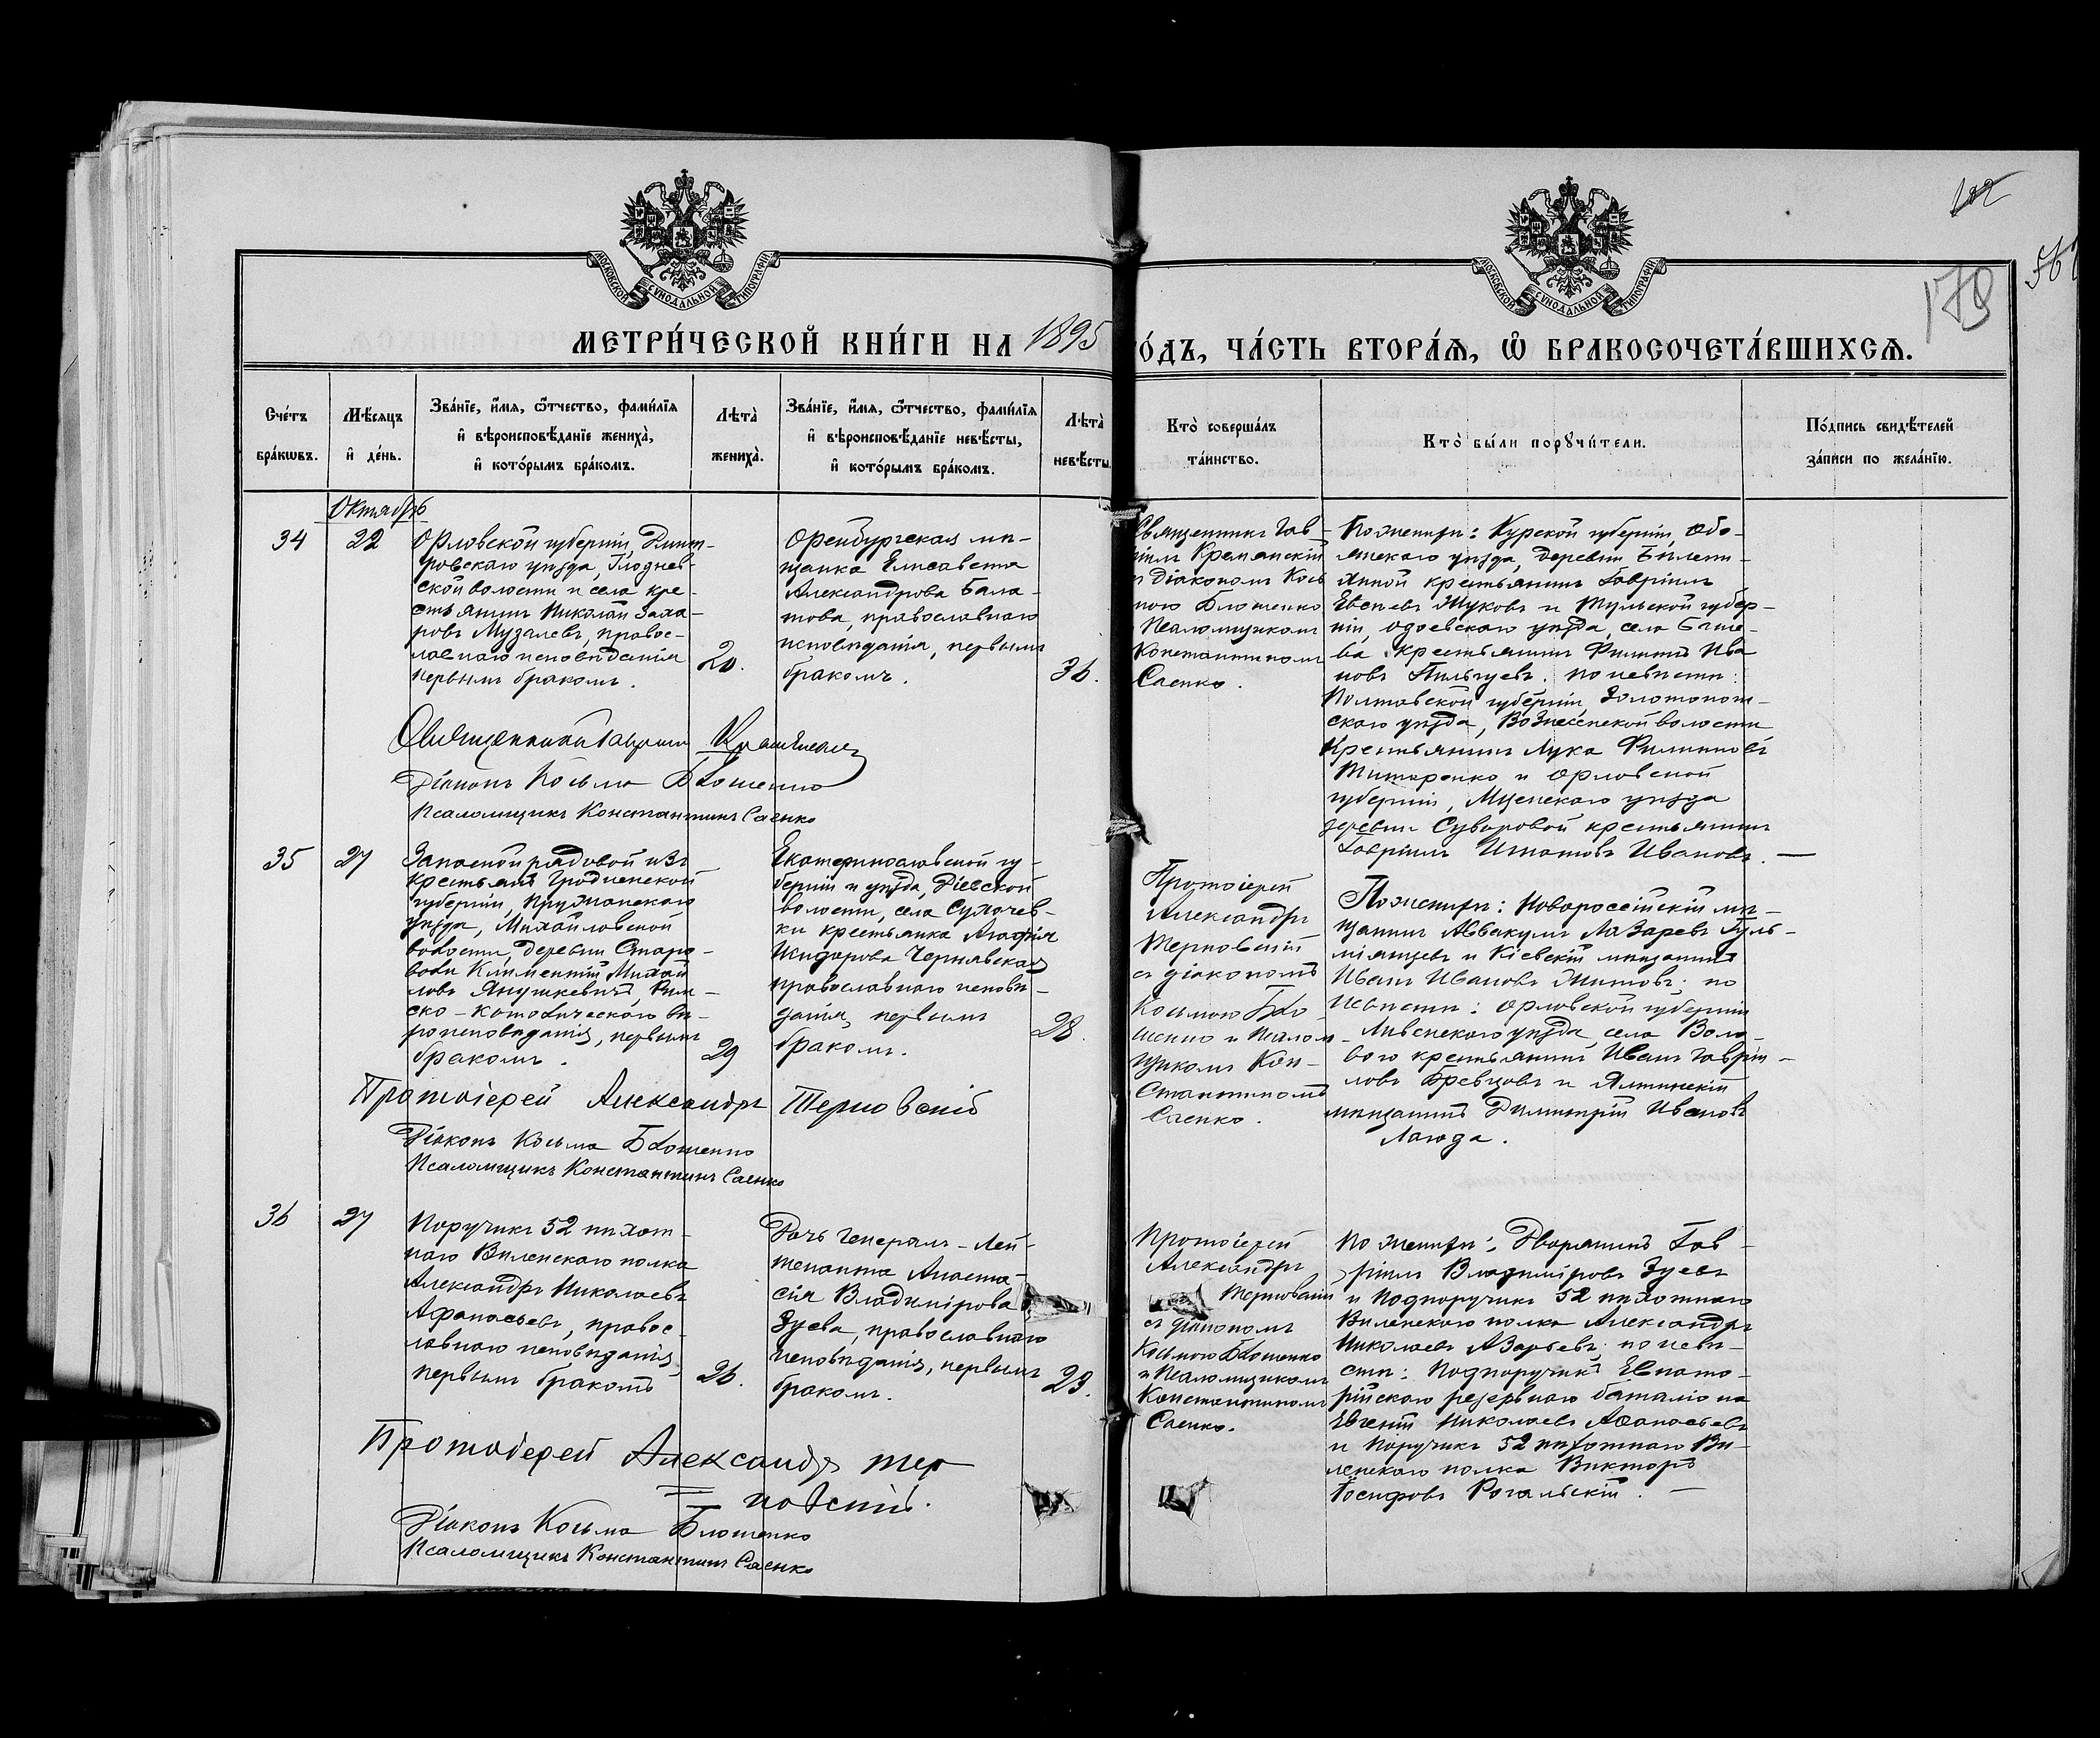 МОСКОВСКОЙ СѴНОДАЛЬНОЙ ТИПОГРАФІИ
МОСКОВСКОЙ СѴНОДАЛЬНОЙ ТИПОГРАФІИ
179
МЕТРИ́ЧЕСКОЙ КНИ́ГИ НА 1895
ГО́ДЪ, ЧА́СТЬ ВТОРА́Ѧ, Ѡ҆ БРАКОСОЧЕТА́ВШИХСѦ.
Сче́тъ бра́кѡвъ.
Мѣ́сяцъ и҆ де́нь.
Зва́нїе, и҆́мя, ѻ҆́тчество, фами́лїя
и҆ вѣроисповѣ́данїе жениха̀,
и҆ кото́рымъ бра́комъ.
Лѣта̀ жениха̀.
Зва́нїе, и҆́мя, ѻ҆́тчество, фами́лїя
и҆ вѣроисповѣ́данїе невѣ́сты,
и҆ кото́рымъ бра́комъ.
Лѣта̀ невѣ́сты
Кто̀ соверша́лъ
та́инство.
Кто̀ бы́ли порꙋчи́тели.
По́дпись свидѣ́телей
за́писи по жела́нїю.
Октябрь
34
22
Орловской губерніи, Дмит-
ровскаго уѣзда, Глоднев-
ской волости и села кре-
стьянинъ Николай Заха-
ровъ Музалевъ, правос-
лавнаго исповѣданія
первымъ бракомъ.
20.
Оренбургская мѣ-
щанка Елисавета
Александрова Бала-
това, православнаго
исповѣданія, первымъ
бракомъ.
36.
Священникъ Гав-
ріилъ
и діакономъ Кось
мою Блошенко
Псаломщикомъ
Константиномъ
Саенко.
По женихѣ: Курской губерніи, Обо-
янскаго уѣзда, деревни
крестьянинъ Гавріилъ
Евсѣевъ Жуковъ и Тульской губер-
ніи, Одоевскаго уѣзда, села
крестьянинъ Филиппъ Ива
новъ по невѣстѣ:
Полтавской губерніи, Золотонош-
скаго уѣзда, Вознесенской волости
Крестьянинъ Лука Филипповъ
Титаренко и Орловской
губерніи, Мценскаго уѣзда
деревни Суворовой крестьянинъ
Гавріилъ Игнатовъ Ивановъ. —
Священникъ Гавріилъ
Діаконъ Косьма Блошенко
Псаломщикъ Константинъ Саенко
35
27
Запасной рядовой изъ
крестьянъ Гродненской
губерніи, Пружанскаго
уѣзда, Михайловской
волости, деревни Старо-
воли Климентій Михай
ловъ Янушкевичъ, Рим-
ско-Католическаго вѣ-
роисповѣданія, первымъ
бракомъ.
29
Екатеринославской гу-
берніи и уѣзда, Діевской
волости, села Сухачев-
ки крестьянка Агафія
Исидорова Чернявская
православнаго исповѣ-
данія, первымъ
бракомъ.
28.
Протоіерей
Александръ
Терновскій
съ діакономъ
Косьмою Бло
шенко и Псалом-
щикомъ Кон-
стантиномъ
Саенко.
По женихѣ: Новороссійскій мѣ-
щанинъ Аввакумъ Лазаревъ Гуль-
міянцевъ и Кіевскій мѣщанинъ
Иванъ Ивановъ Титовъ; по
невѣстѣ: Орловской губерніи
Ливенскаго уѣзда, села Воло-
ваго крестьянинъ Иванъ Гавріи-
ловъ Бревцовъ и Ялтинскій
мѣщанинъ Димитрій Ивановъ
Лагода.
Протоіерей Александръ Терновскій
Діаконъ Косьма Блошенко
Псаломщикъ Константинъ Саенко
36
27
Поручикъ 52 пѣхот-
наго Виленскаго полка
Александръ Николаевъ
Афанасьевъ, правос-
лавнаго исповѣданія,
первымъ бракомъ
26.
Дочь генералъ-Лей-
тенанта Анаста-
сія Владимірова
Зуева, православнаго
исповѣданія, первымъ
бракомъ.
23.
Протоіерей
Александръ
Терновскій
съ діакономъ
Косьмою Блошенко
и Псаломщикомъ
Константиномъ
Саенко.
По женихѣ: Дворянинъ Гав-
ріилъ Владиміровъ Зуевъ
и Подпоручикъ 52 пѣхотнаго
Виленскаго полка Александръ
Николаевъ Азарьевъ; по невѣ-
стѣ: Подпоручикъ Евпато-
рійскаго резервнаго баталіона
Евгеній Николаевъ Афанасьевъ
и Поручикъ 52 пѣхотнаго Ви-
ленскаго полка Викторъ
Іосифовъ Рогальскій. —
Протоіерей Александръ Тер
новскій.
Діаконъ Косьма Блошенко
Псаломщикъ Константинъ Саенко